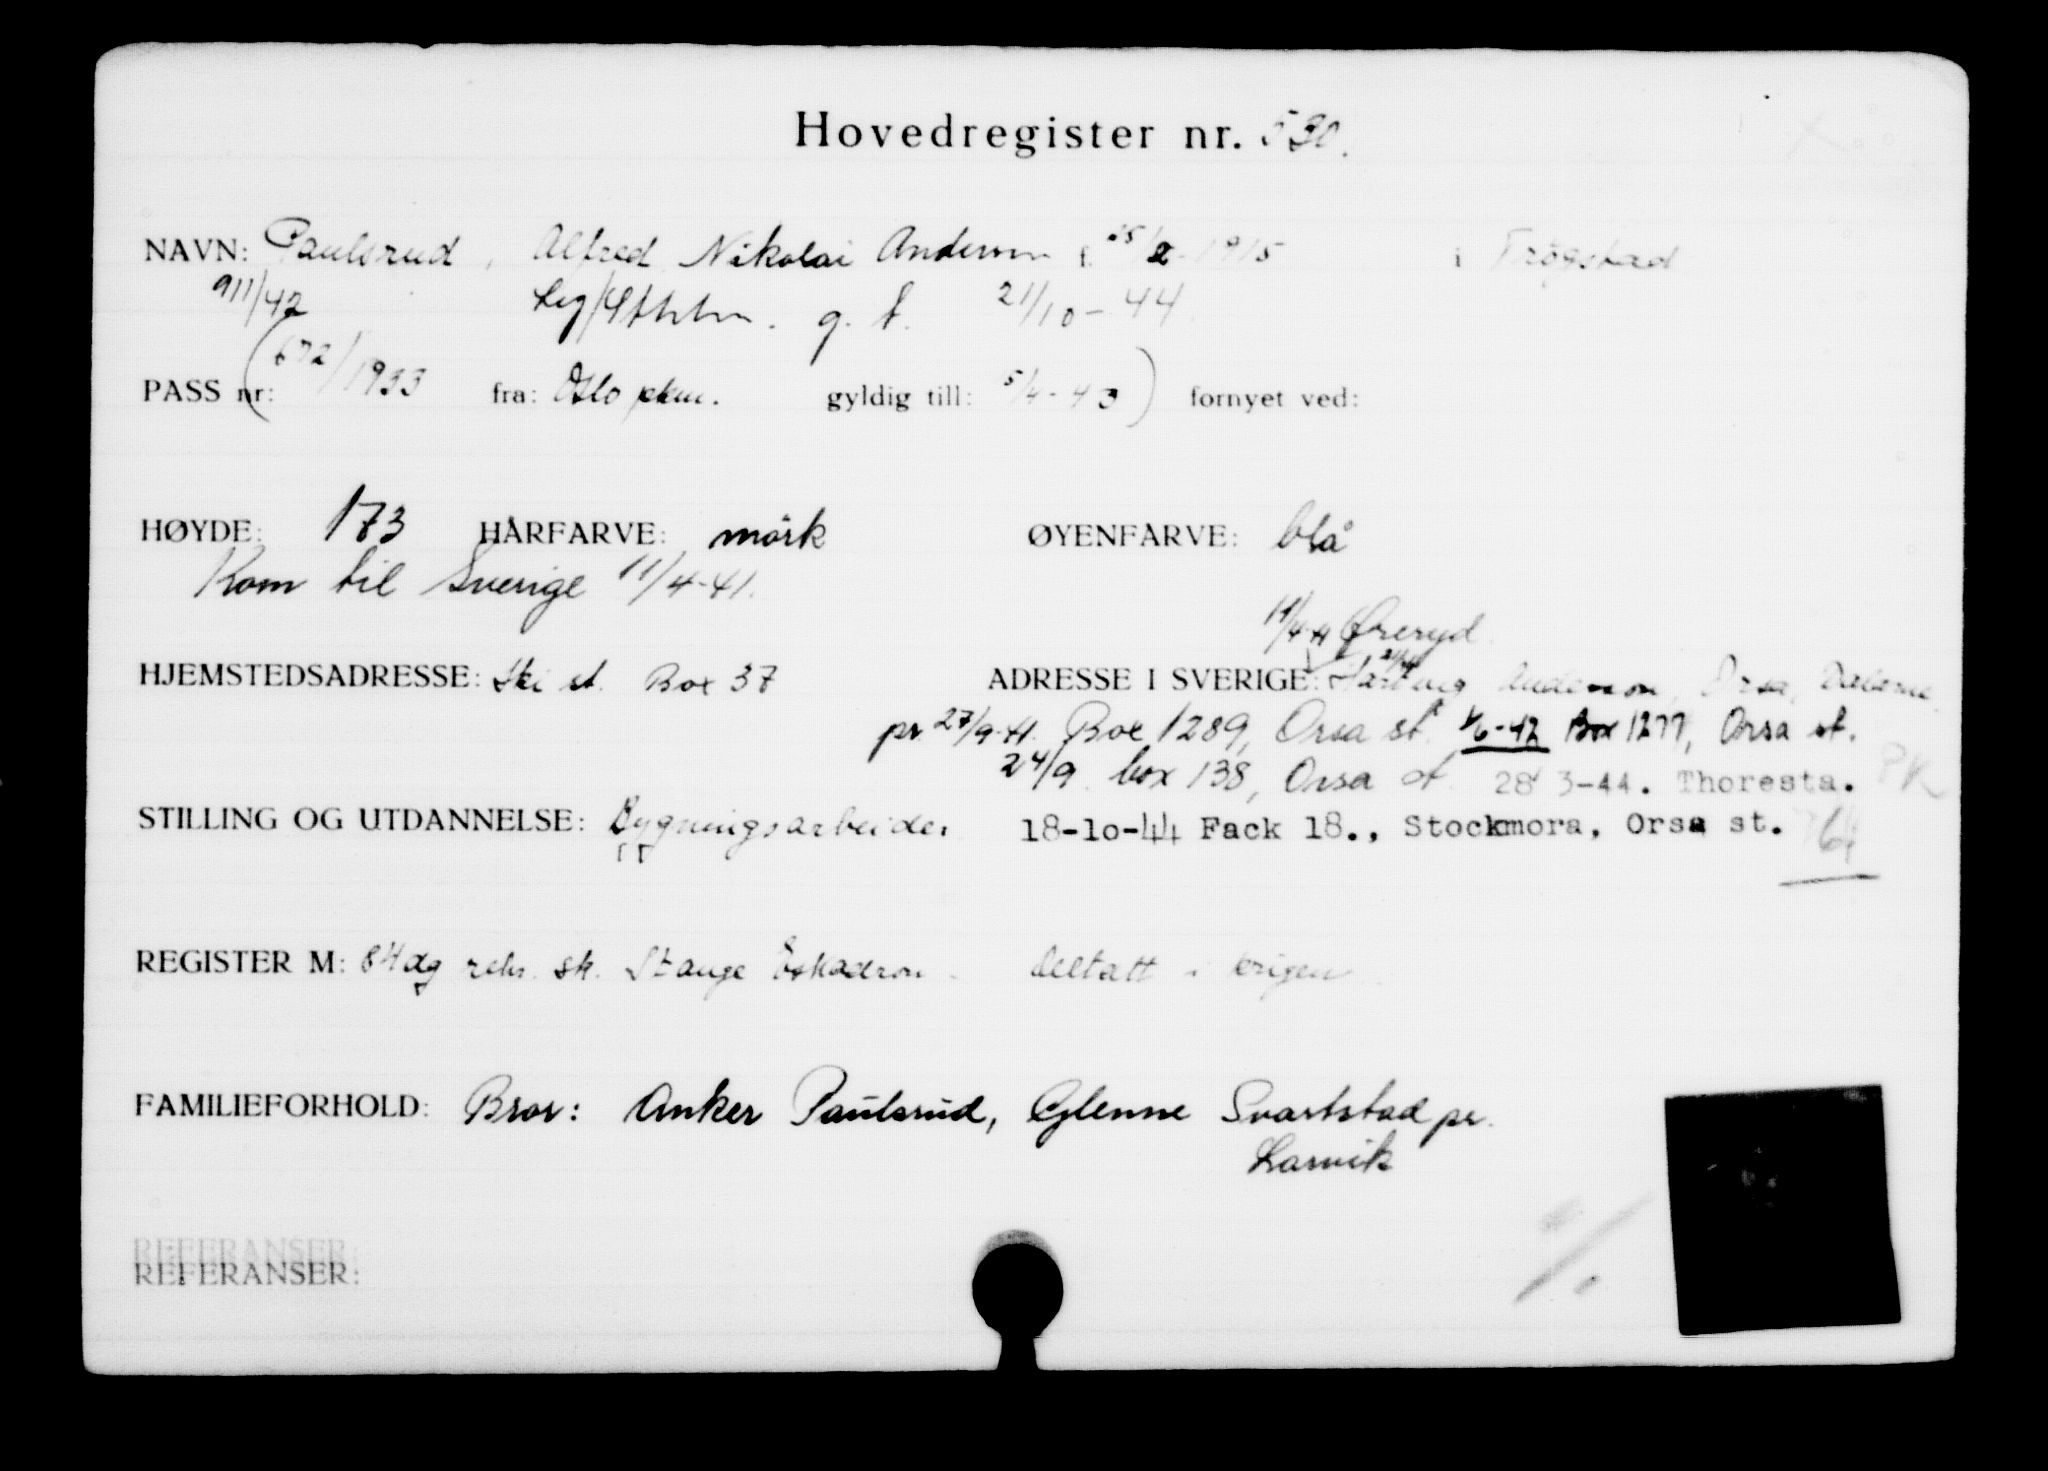 Hovedregister nr. 530.
NAVN: Paulsrud, Alfred Nikolai Andersen f. 25/2-1915 i Trögstad
911/42 Leg/Sthlm. g. t. 21/10-44
PASS nr: (672/1933 fra: Oslo pkm. gyldig till: 5/4-43) fornyet ved:
HØYDE: 173 HÅRFARVE: mörk ØYENFARVE: blå
Kom til Sverige 11/4-41.
11/4-41 Øreryd
HJEMSTEDSADRESSE: Ski st. Box 37 ADRESSE I SVERIGE: Hartvig Anderson, Orsa, Dalarne
pr. 27/9-41. Box 1289, Orsa st. 1/6-42 Box 1277, Orsa st.
24/9 box 138, Orsa st. 28 3-44. Thoresta. PK
STILLING OG UTDANNELSE: Bygningsarbeider 18-10-44 Fack 18., Stockmora, Orsa st. 64
REGISTER M: 84 dg rekr. sk. Stange Eskadron - Deltatt i krigen
FAMILIEFORHOLD: Bror: Anker Paulsrud, Glenne Svartstad pr.
Larvik
REFERANSER:
REFERANSER: